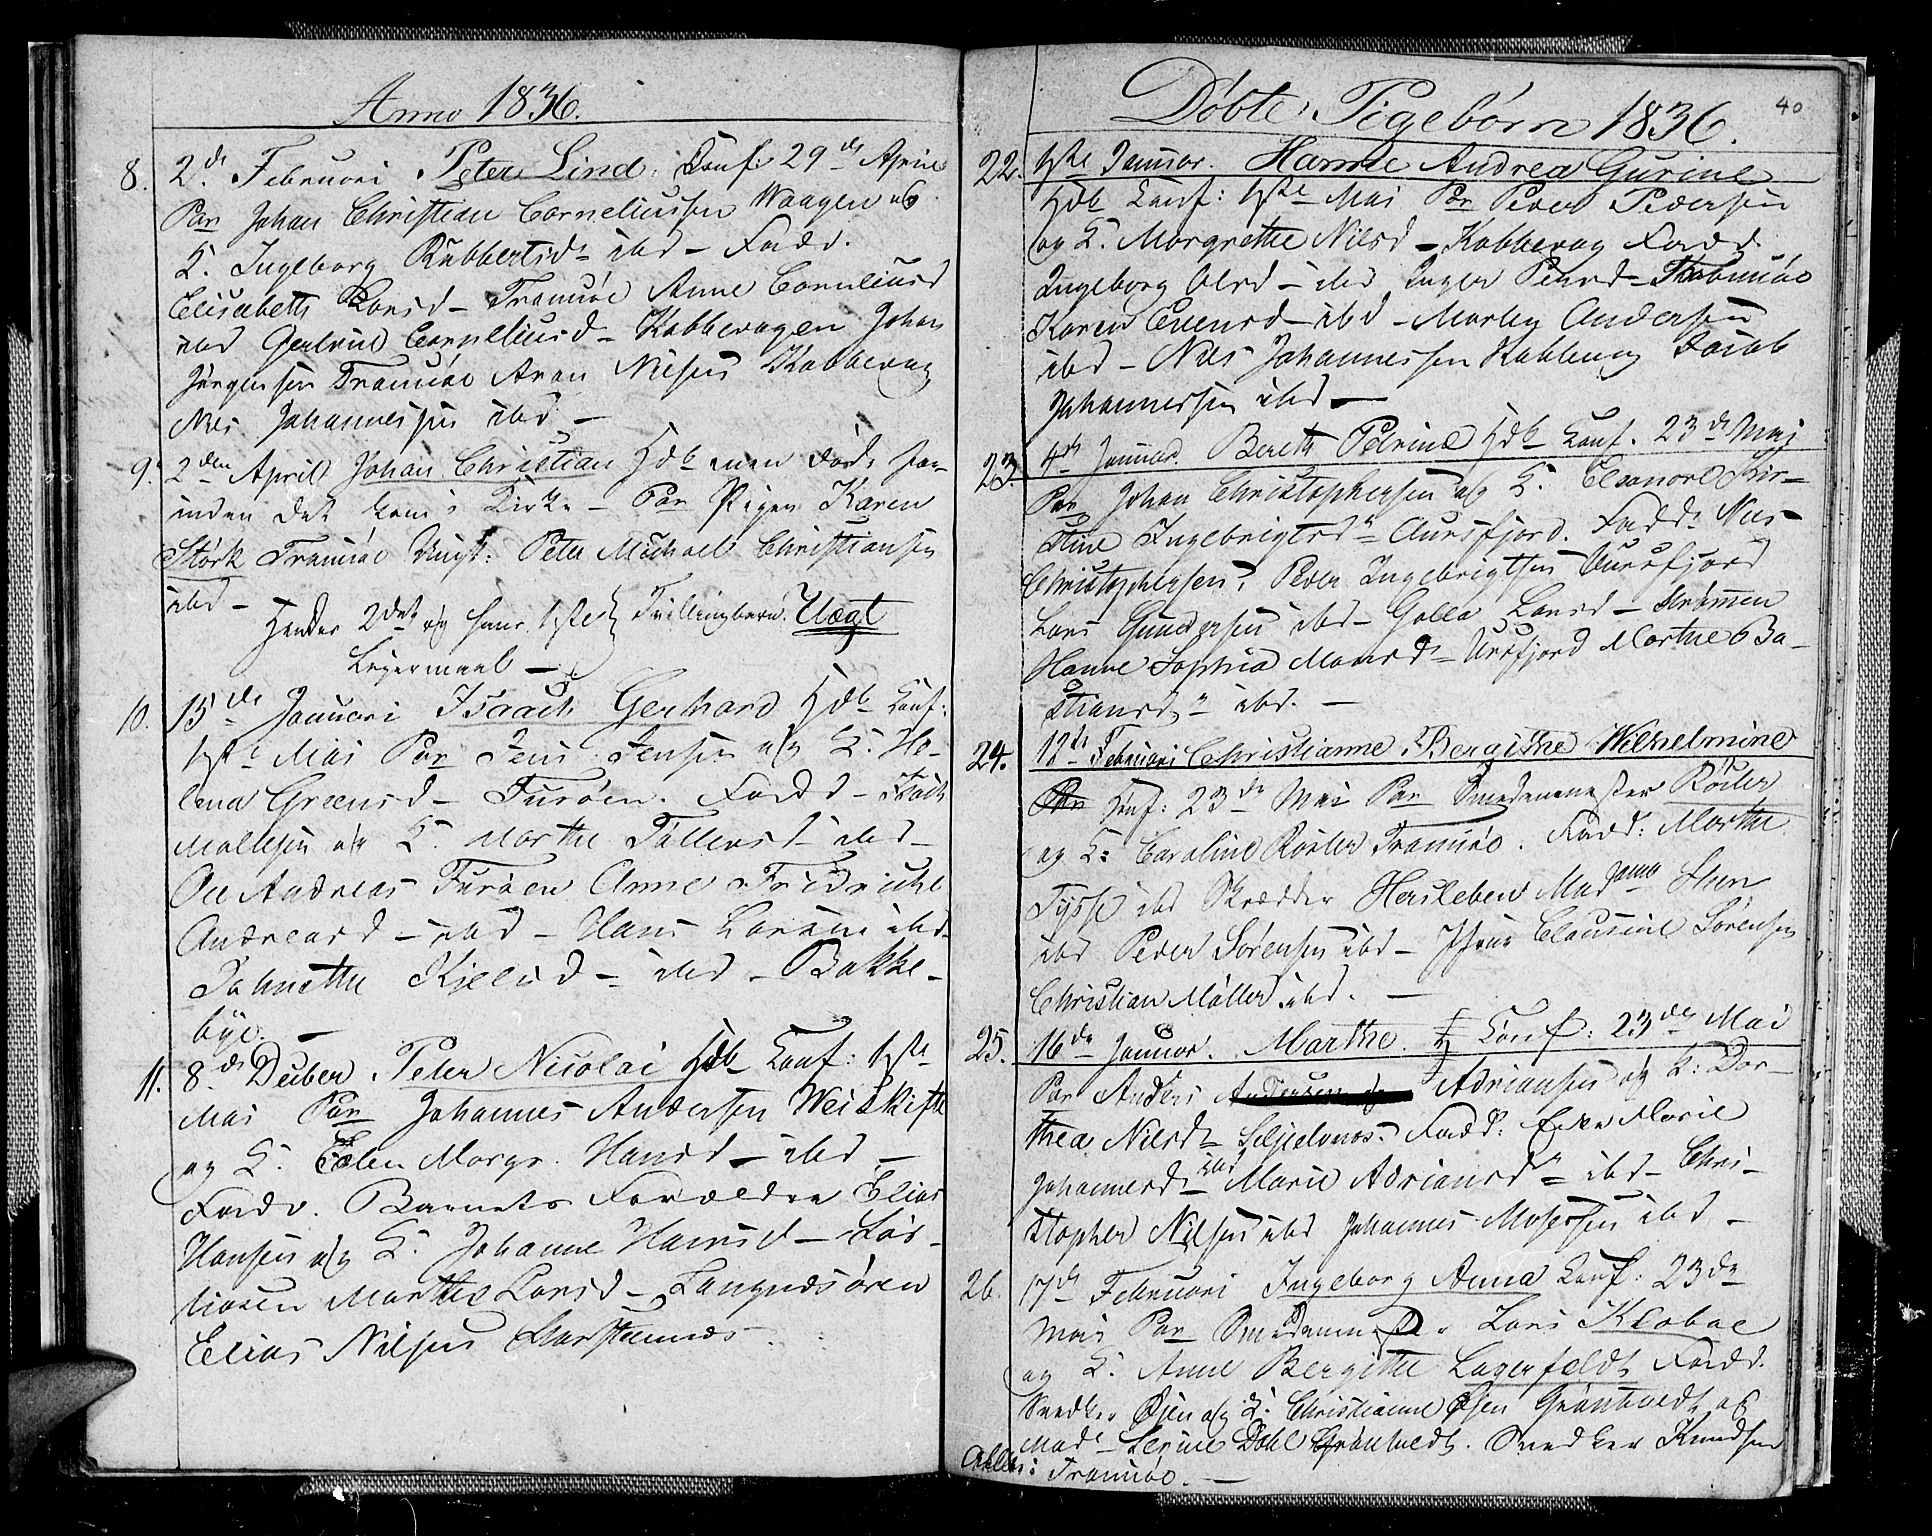 Anno 1836.
8. 2de Februari Peter Lind. Conf: 29de April
Par Johan Christian Corneliussen Waagen og
K. Ingeborg Rubbertsd- ibd - Fadd.
Elisabeth Larsd- Tromsöe Anne Corneliusd
ibd Gertrud Corneliusd - Kobbevagen Johan
Jörgensen Tromsöe Aron Nilsen Kobbevag
Nils Johannessen ibd -
9. 2den April Johan Christian Hdb men döde for-
inden det kom i Kirke - Par Pigen Karen
Störk Tromsöe Ungk: Peter Michael Christiansen
ibd -
Hendes 2det og hans 1ste Tvillingbarn. Uægt
Leiermaal -
10. 15de Januari Isaach Gerhard Hdb Conf:
1ste Mai Par Jens Jensen og K. Ho-
lena Greensd - Turöen. Fadd - Isach
Mallesen og K. Marthe Tollevsd ibd -
Ole Andreas Turöen Anne Fridriche
Andreasd - ibd - Hans Larsen ibd -
Johnette Kielsd - ibd - Bakke-
bye. -
11. 8de Deceber Peter Nicolai Hdb Conf: 1ste
Mai Par Johannes Andersen Meiskifte
og K. Edlen Margr. Hansd - ibd -
Fadd. Barnets Forældre Elias
Hansen og K. Johanne Hansd - Lös-
Marthe Larsd - Langnæsören
Elias Nilsen
Döbte Pigebörn 1836. 40
22. 1ste Januar. Hanne Andrea Gurine
Hdb Conf: 1ste Mai Par Peder Pedersen
og K. Margrethe Nilsd - Kobbevag Fadd.
Ingeborg Olsd - ibd Inger Pedersd - Tromsöe
Karen Evensd - ibd - Andersen
ibd - Nils Johannessen Kobbevag Jacob
Johannessen ibd -
23. 4de Januar. Bereth Petrine Hdb Conf. 23de Mai
Par Johan Christophersen og K. Eleonore Kir-
stine Ingebrigtsd- Aursfjord. Fadd. Nils
Christophersen, Peder Ingebrigtsen Aursfjord
Lars Gundersen ibd - Golla Larsd - Strömmen
Hanne Sophia Monsd - Aursfjord Marthe Ba-
stiansd - ibd. -
24. 12de Februari Christianne Bergithe Wilhelmine
Conf: 23de Mai Par Smedemester Röiler
og K: Caroline Röiler Tromsöe. Fadd: Marthe
Tysse ibd Skrædder Hersleben Madame Steen
ibd Peder Sörensen ibd - Jfrue Clausine Sörensen
Christian Möller ibd. -
25. 16de Januar. Marthe. H Conf: 23de Mai
Par Anders Andersen og Adriansen og K: Dor-
thea Nilsd - Seljelvnæs. Fadd: Marie
Johannesd - ibd Marie Adriansd - ibd - Chri-
stopher Nilsen ibd Johannes Mosessen ibd -
26. 17de Februari Ingeborg Anna Conf: 23de
Mai Par Lars Kloboe
og K. Anne Bergithe Lagerfeldt Fadd.
Snedker Öien og K: Christianne Öien Grönhvedt og
Made Serine Dahl Grönhvedt. Snedker Knudsen
Alle i Tromsöe. -